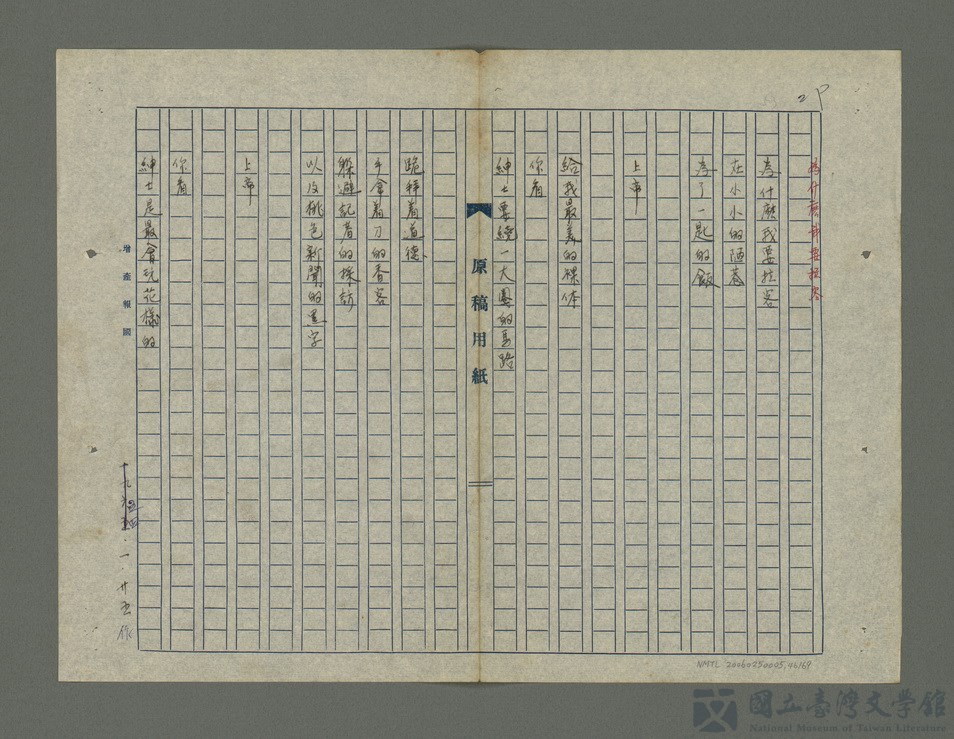 2P
為什麼我要拉客
為什麼我要拉客
在小小的陋巷
為了一匙的飯
上帝
給我最美的裸体
你看
紳士要繞一大圈的馬路
原稿用紙
跪拜着道德、
手拿着刀的香客
躲避記者的採訪
以及桃色新聞的黑字
上帝
你看
紳士是最會玩花樣的
增產報國
一・廿五作
NMTL 20060250005,46169
國立臺灣文學館
National Museum of Taiwan Literature